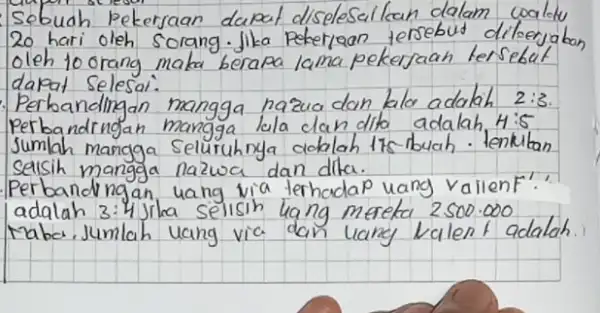 Sebuah Pekerjaan dapat diselesaikan dalam waktu
20 hari oleh 5orang. Jika Pekerjaan tersebut dikerjakan
oleh 10 orang maka berapa lama pekerjaan tersebut
dapat selesai.
Perbandingan mangga nazua dan lala adalah 2:3.
Perbandingan mangga lala dan dita adalah, 4:5
Jumlah mangga seluruhnya adalah 175 buah. tentukan
selisih mangga nazwa dan dita.
Perbandingan uang via terhadap uang vailent.
adalah 3:4 Jika selisih uang mereka 2.500.000
maka, Jumlah uang via dan uang valent adalah.